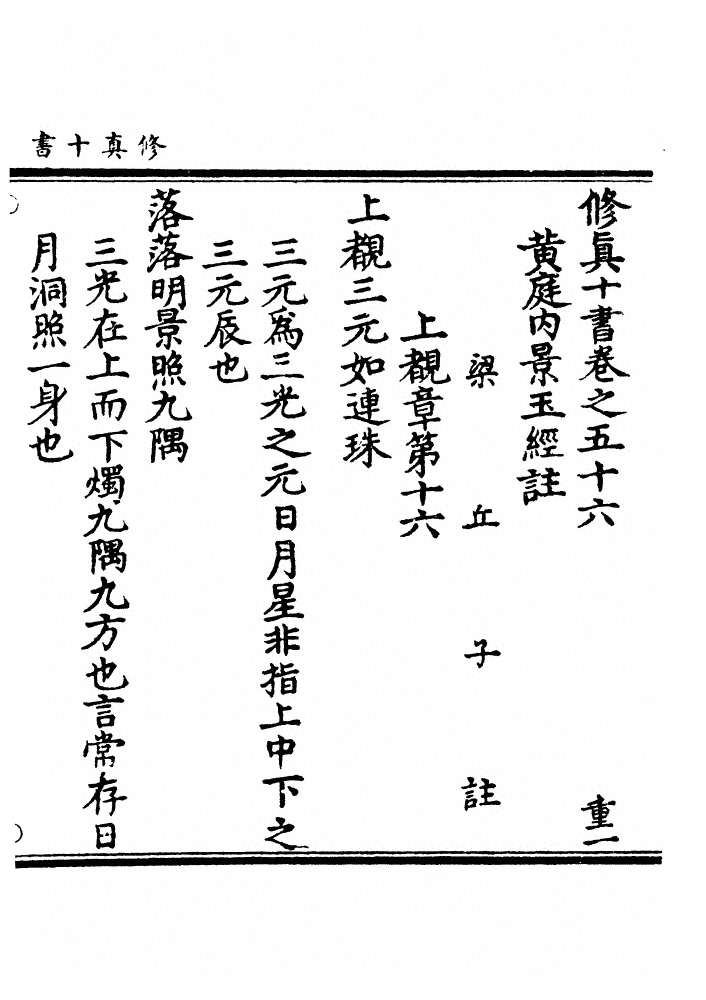 修真十書
修眞十書卷之五十六 重一
黄庭内景玉經註
梁丘子註
上覩章第十六
上覩三元如連珠
三元爲三光之元日月星非指上中下之
三元辰也
落落明景照九隅
三光在上而下燭九隅九方也言常存日
月洞照一身也